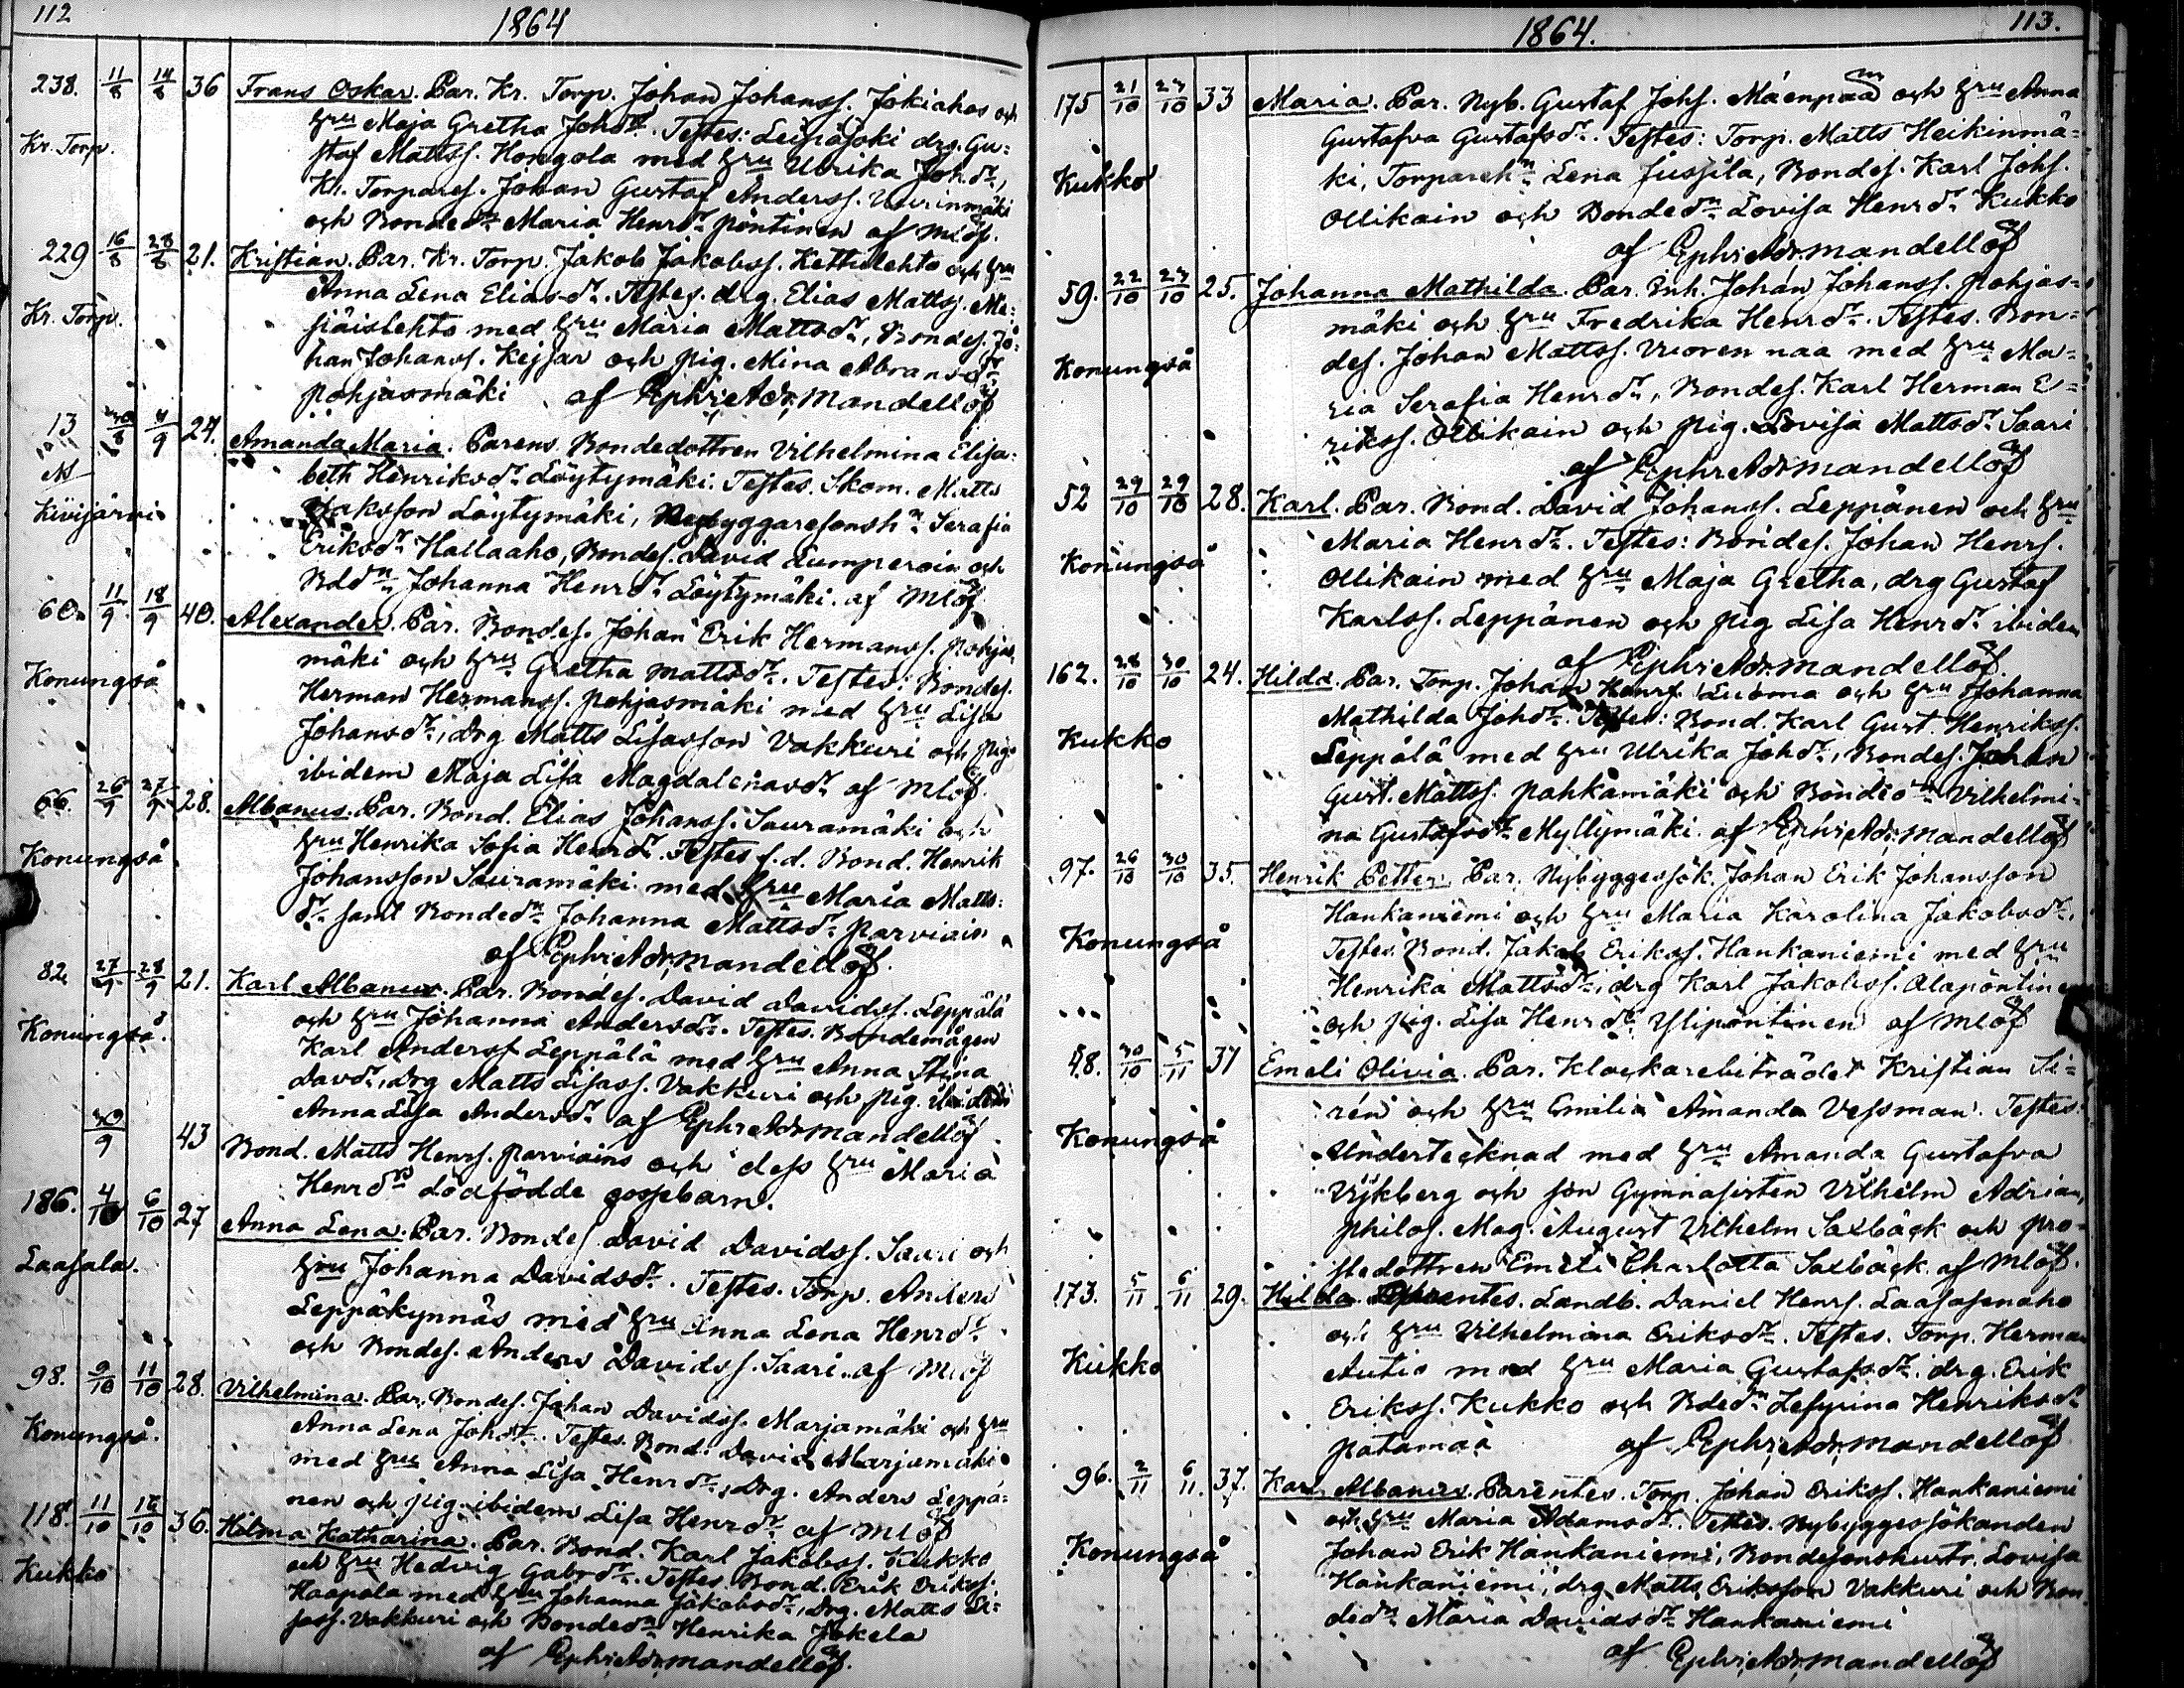 112
1864
238. 11/8 14/8 36 Frans Oskar. Par. Kr. Torp. Johan Johanss. Jokiahos och
hru Maja Gretha Johdr. Testes: Leipäjoki drg. Gu=
Kr. Torp.
staf Mattss. Hongola med hru Ulrika Johdr,
Kr. Torpares. Johan Gustaf Anderss. Uurinmäki
och Bondedn Maria Henrdr Pöntinen af Mlöf.
229 16/8 28/8 21. Kristian. Par. Kr. Torp. Jakob Jakobss. Kettulehto och hru
Anna Lena Eliasdr. Testes. drg. Elias Mattss. Me=
Kr. Torp.
siäislehto med hru Maria Mattsdr, Bondes. Jo=
han Johanss. Keissar och pig. Mina Abramsdr
Pohjasmäki af Ephr. Adr. Mandellöf
13 30/8 4/9 24. Amanda Maria. Parens Bondedottren Vilhelmina Elisa=
beth Henriksdr Löytymäki. Testes. Skom. Matts
Kivijärvi
Isaksson Löytymäki, Nybyggaresonshn Serafia
Eriksdr Hallaaho, Bondes. David Lumperoin och
Bddn Johanna Henrdr Löytymäki. af Mlöf
60. 11/9 18/9 40. Alexander. Par. Bondes. Johan Erik Hermanss. Pohjas
mäki och hru Gretha Mattsdr. Testes: Bondes.
Konungså
Herman Hermanss. Pohjasmäki med hru Lisa
Johansdr, Drg Matts Lisasson Vakkuri och pig.
ibidem Maja Lisa Magdalenasdr af Mlöf.
66. 26/9 27/9 28. Albanus. Par. Bond. Elias Johanss. Sauramäki och
hru Henrika Sofia Henrdr. Testes f.d. Bond. Henrik
Konungså
Johansson Sauramäki med hru Maria Matts=
dr samt Bondedn Johanna Mattsdr Parviain
af Ephr. Adr. Mandellöf.
82. 27/9 28/9 21. Karl Albanus. Par. Bondes. David Davidss. Leppälä
och hru Johanna Andersdr. Testes. Bondemågen
Konungså.
Karl Anderss Leppälä med hru Anna Stina
Davdr, Drg Matts Lisass. Vakkuri och pig. ibidem
Anna Lisa Andersdr af Ephr. Adr. Mandellöf
30/9 43 Bond. Matts Henrs. Parviains och dess hru Maria
Henrdrs dödfödde gossebarn.
186. 4/10 6/10 27 Anna Lena. Par. Bondes David Davidss. Saari och
hru Johanna Davidsdr. Testes. Torp. Anders
Laasala.
Leppäkynnäs med hru Anna Lena Henrdr
och Bondes. Anders Davidss. Saari. af Mlöf
98. 9/10 11/10 28. Vilhelmina. Par. Bondes. Johan Davidss. Marjamäki och hru
Anna Lena Johdr. Testes. Bond. David Marjamäki
Konungså.
med hru Anna Lisa Henrdr, Drg. Anders Leppä=
nen och pig. ibidem Lisa Henrdr af Mlöf
118. 11/10 12/10 36. Hilma Katharina. Par. Bond. Karl Jakobss. Kukko
och hru Hedvig Gabrdr. Testes. Bond. Erik Erikss.
Kukko
Haapala med hru Johanna Jakobsdr, Drg. Matts Li=
sass. Vakkuri och Bondedn Henrika Jokela
af Ephr. Adr. Mandellöf.
1864.
113.
175 21/10 23/10 33 Maria. Par. Nyb. Gustaf Johs. Mäenpää och hru Anna
Gustafva Gustafsdr. Testes: Torp. Matts Heikinmä=
Kukko
ki, Torparehn Lena Jussila, Bondes. Karl Johs.
Ollikain och Bondedn Lovisa Henrdr Kukko
af Ephr. Adr. Mandellöf
59. 22/10 23/10 25. Johanna Mathilda. Par. Inh. Johan Johanss. Pohjas=
mäki och hru Fredrika Henrdr. Testes. Bon=
Konungså
des. Johan Mattss. Vuorenmaa med hru Ma=
ria Serafia Henrdr, Bondes. Karl Herman E=
rikss. Ollikain och pig. Lovisa Mattsdr Saari
af Ephr Adr Mandellöf
52 29/10 29/10 28. Karl. Par. Bond. David Johanss. Leppänen och hru
Maria Henrdr. Testes: Bondes. Johan Henrs.
Konungså
Ollikain med hru Maja Gretha, drg Gustaf
Karlss. Leppänen och pig Lisa Henrdr ibidem
af Ephr. Adr. Mandellöf.
162. 28/10 30/10 24. Hilda. Par. Torp. Johan Henrs. Luoma och hru Johanna
Mathilda Johdr. Testes: Bond. Karl Gust. Henrikss.
Kukko
Leppälä med hru Ulrika Johdr, Bondes. Johan
Gust. Mattss. Pahkamäki och Bondedn Vilhelmi=
na Gustafsdr Myllymäki. af Ephr. Adr. Mandellöf
97. 26/10 30/10 35. Henrik Petter. Par. Nybyggessök. Johan Erik Johansson
Hankaniemi och hru Maria Karolina Jakobsdr.
Konungså
Testes Bond. Jakob Erikss. Hankaniemi med hru
Henrika Mattsdr, drg Karl Jakobss. Alapöntinen
och pig. Lisa Henrdr Ylipöntinen af Mlöf
48. 30/10 5/11 37 Emeli Olivia. Par. Klockarebiträdet Kristian Si=
rén och hru Emilia Amanda Vessman. Testes
Konungså
Undertecknad med hru Amanda Gustafva
Vijkberg och son Gymnasisten Vilhelm Adrian,
Philos. Mag. August Vilhelm Saxbäck och pro=
stedottren Emeli Charlotta Saxbäck af Mlöf.
173. 5/11 6/11 29. Hilda Parentes. Landb. Daniel Henrs. Laasasenaho
och hru Vilhelmina Eriksdr. Testes. Torp. Herman
Kukko
Autio med hru Maria Gustafsdr. drg. Erik
Erikss. Kukko och Bdedn Lefyrina Henriksdr
Patamaa af Ephr. Adr. Mandellöf
96. 2/11 6/11 37. Karl Albanus. Parentes. Torp. Johan Erikss. Hankaniemi
och hru Maria Adamsdr. Testes. Nybyggessökanden
Konungså
Johan Erik Hankaniemi, Bondesonshustr. Lovisa
Hankaniemi, drg Matts Eriksson Vakkuri och Bon
dedn Maria Davidsdr Hankaniemi
af Ephr. Adr. Mandellöf